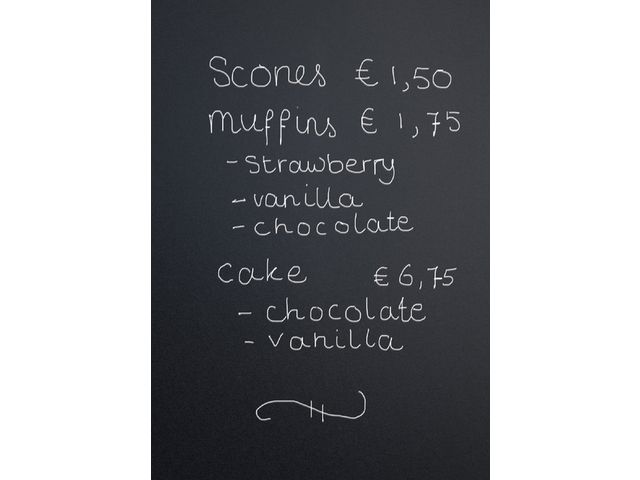 Scones € 1,50
muffins € 1,75
- Strawberry
- vanilla
- chocolate
cake € 6,75
- chocolate
- vanilla